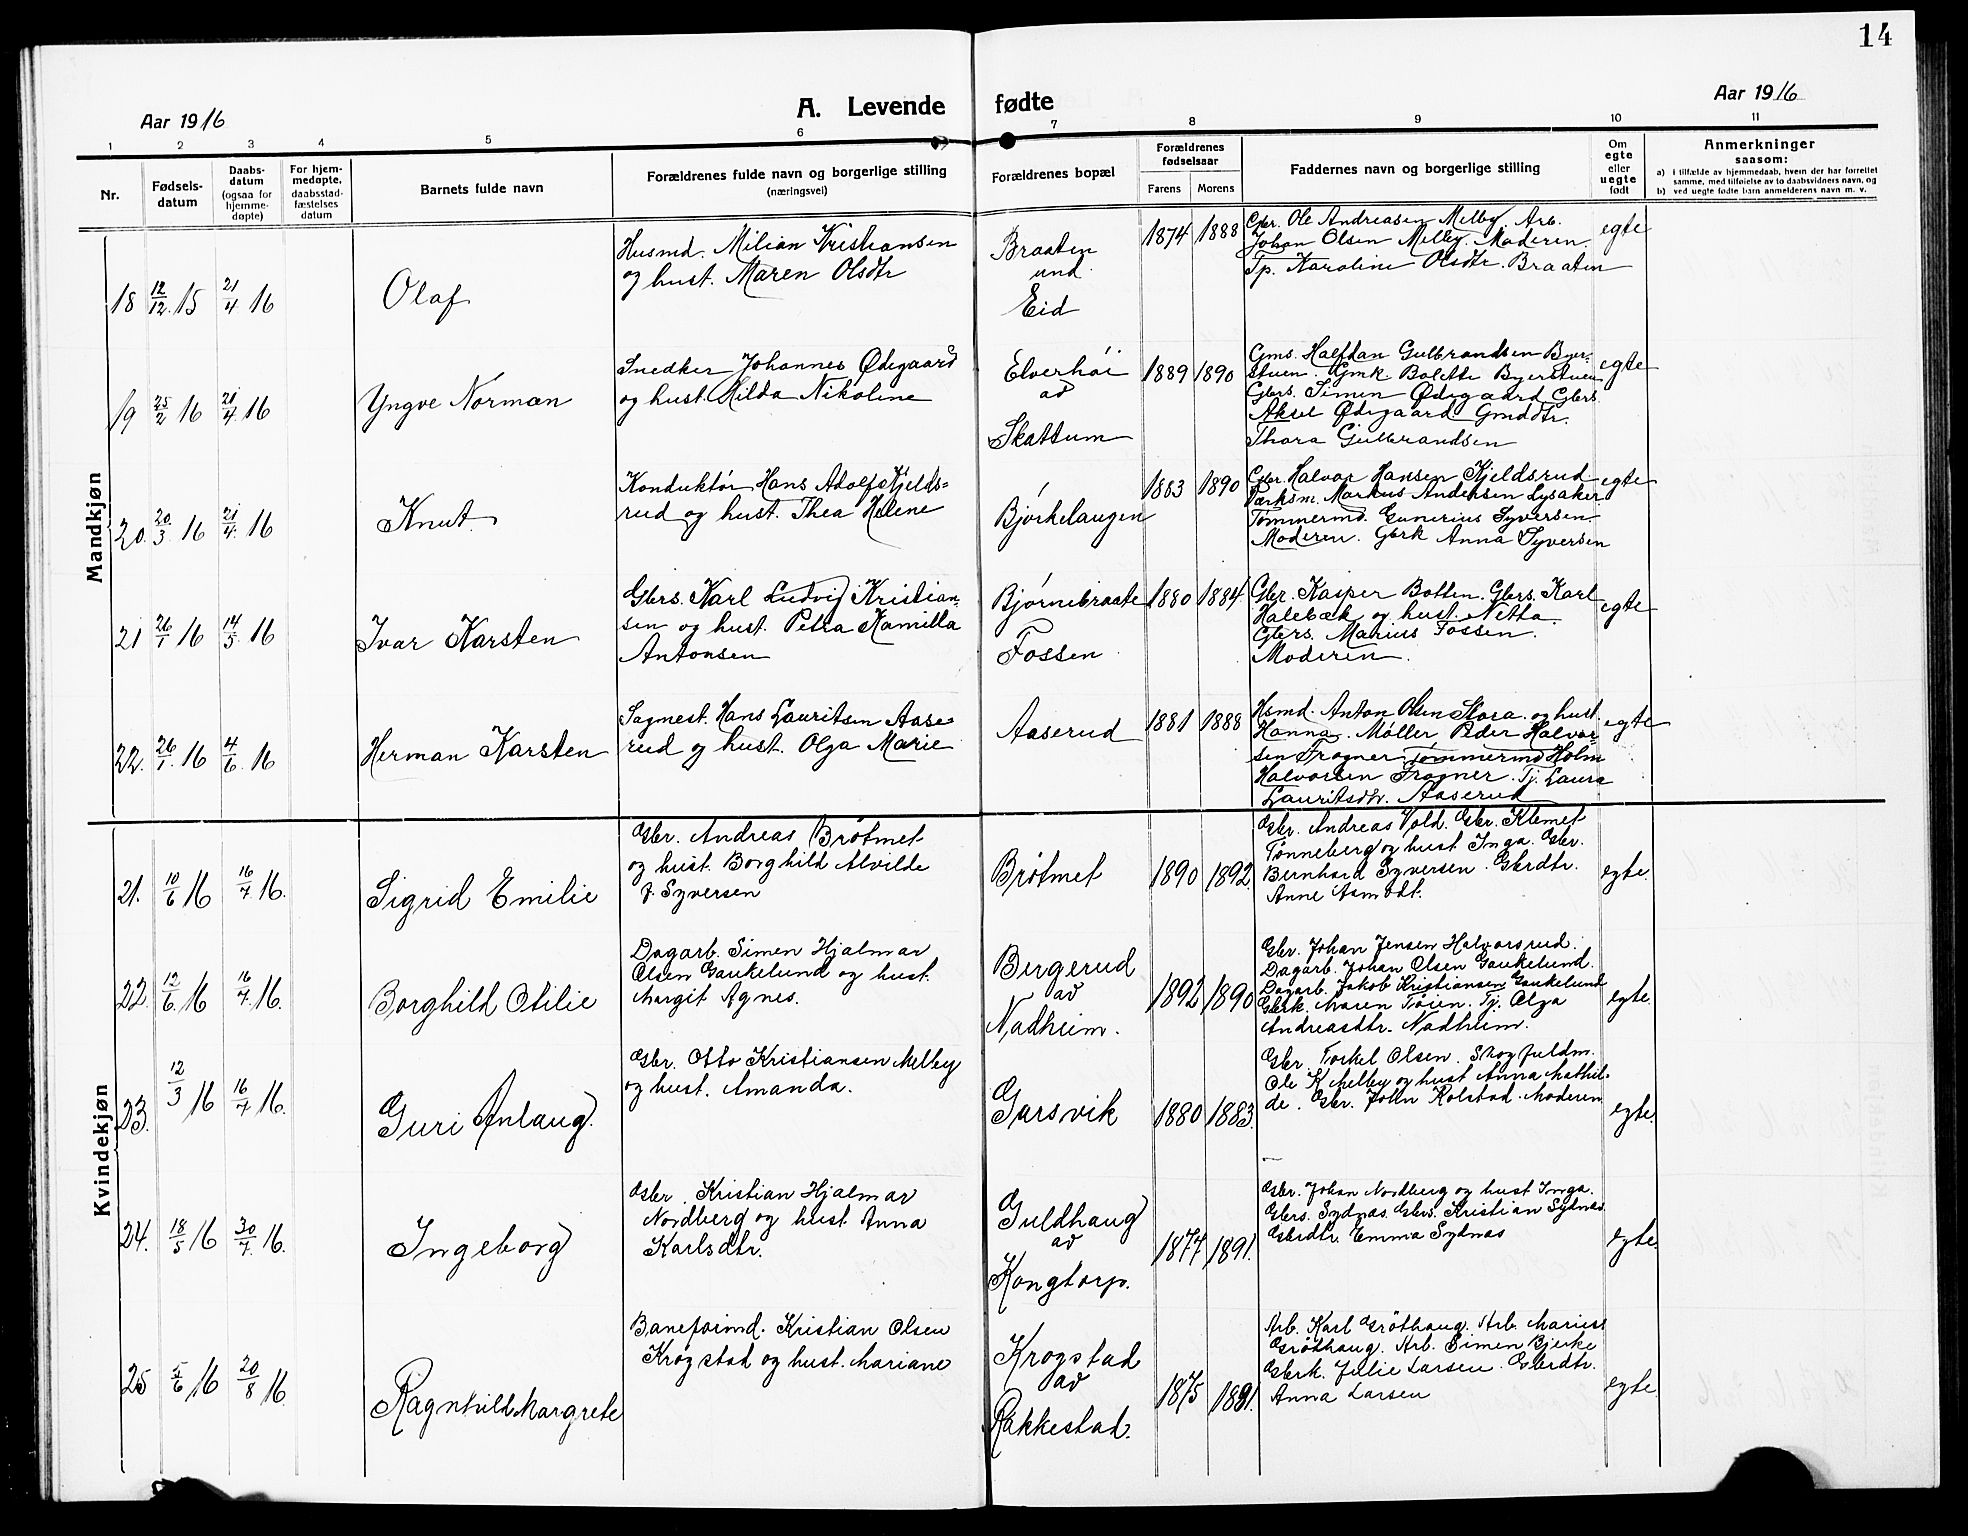 14
Aar 1916
A. Levende fødte
Aar 1916
1 2 3 4 5 6 7 8 9 10 11
Nr.
Fødsels-
datum
Daabs-
datum
(ogsaa for
hjemme-
døpte)
For hjem-
medøpte,
daabsstad-
fæstelses
datum
Barnets fulde navn
Forældrenes fulde navn og borgerlige stilling
(næringsvei)
Forældrenes bopæl
Forældrenes
fødselsaar
Farens Morens
Faddernes navn og borgerlige stilling
Om
egte
eller
uegte
født
Anmerkninger
saasom:
a) i tilfælde av hjemmedaab, hvem der har forrettet
samme, med tilføielse av to daabsvidners navn, og
b) ved uegte fødte barn anmelderens navn m. v.
Mandkjøn
18 12/12 15 21/4 16
Olaf
Husmd. Milian Kristiansen
og hust. Maren Olsdtr
Braaten
und
Eid
1874 1888
Gbr. Ole Andreasen Melby. Arb.
Johan Olsen Melby. Moderen.
Tp. Karoline Olsdtr. Braaten
egte
19 25/2 16 21/4 16
Yngve Norman
Snedker Johannes Ødegaard
og hust. Hilda Nikoline
Elverhøi
av
Skattum
1889 1890
Gms. Halfdan Gulbrandsen Byer-
stuen. Gmk. Bolette Byerstuen
Gbrs. Simen Ødegaard Gbrs.
Aksel Ødegaard. Gmddtr.
Thora Gulbrandsen
egte
20. 20/3 16 21/4 16
Knut.
Konduktør Hans Adolf Kjelds=
rud og hust. Thea Helene
Bjørkelangen
1883 1890
Gbr. Halvor Hansen Kjeldsrud
Værksm. Markus Andersen Lysaker
Tømmermd. Gunerius Syversen.
Moderen. Gbrk Anna Syversen
egte
21 26/1 16 14/5 16
Ivar Karsten
Gbrs. Karl Ludvig Kristian-
sen og hust. Petra Kamilla
Antonsen
Bjørnebraate
Fossen
1880 1884
Gbr. Kasper Botten. Gbrs. Karl
Halebæk og hust. Netta.
Gbrs. Marius Fossen.
Moderen.
egte
22. 26/1 16 4/6 16
Herman Karsten
Sagmest. Hans Lauritsen Aase-
rud og hust. Olga Marie
Aaserud
1881 1888
Hsmd. Anton Olsen Stora og hust.
Hanna. Møller Peder Halvor-
sen Frogner Tømmermd Holm
Halvorsen Frogner. Tj. Laura
Lauritsdtr. Aaserud
egte
Kvindekjøn
21. 10/6 16 16/7 16.
Sigrid Emilie
Gbr. Andreas Brøtmet
og hust. Borghild Alvilde
f. Syversen
Brøtmet
1890 1892
Gbr. Andreas Vold. Gbr. Klemet
Tønneberg og hust Inga. Gbr.
Bernhard Syversen. Gbrdtr.
Anne Asmodt.
egte.
22. 12/6 16 16/7 16.
Borghild Otilie
Dagarb. Simen Hjalmar
Olsen Gaukelund og hust.
Margit Agnes.
Bergerud
av
Nadheim.
1892 1890
Gbr. Johan Jensen Halvorsrud.
Dagarb. Johan Olsen Gaukelund.
Dagarb. Jakob Kristiansen Gaukelund
Gbrk. Maren Tøien. Tj. Olga
Andreasdtr. Nadheim.
egte.
23. 12/3 16 16/7 16.
Guri Anlaug.
Gbr. Otto Kristiansen Melby
og hust. Amanda.
Garsvik
1880 1883.
Gbr. Torkel Olsen. Skogfuldm.
Ole K Melby og hust Anna Mathil-
de. Gbr. John Rolstad. Moderen
egte.
24. 18/5 16 30/7 16.
Ingeborg
Gbr. Kristian Hjalmar
Nordberg og hust Anna
Karlsdtr.
Guldhaug
av
Kongtorp.
1877 1891.
Gbr. Johan Nordberg og hust Inga.
Gbrs. Sydnæs. Gbrs. Kristian Sydnæs.
Gbrdtr. Emma Sydnæs
egte.
25 5/6 16 20/8 16.
Ragnhild Margrete
Baneformd. Kristian Olsen
Krogstad og hust. Mariane
Krogstad
av
Rakkestad.
1875 1881.
Arb. Karl Grøthaug. Arb. Marius
Grøthaug. Arb. Simen Bjerke
Gbrk. Julie Larsen. Gbrdtr.
Anna Larsen
egte.